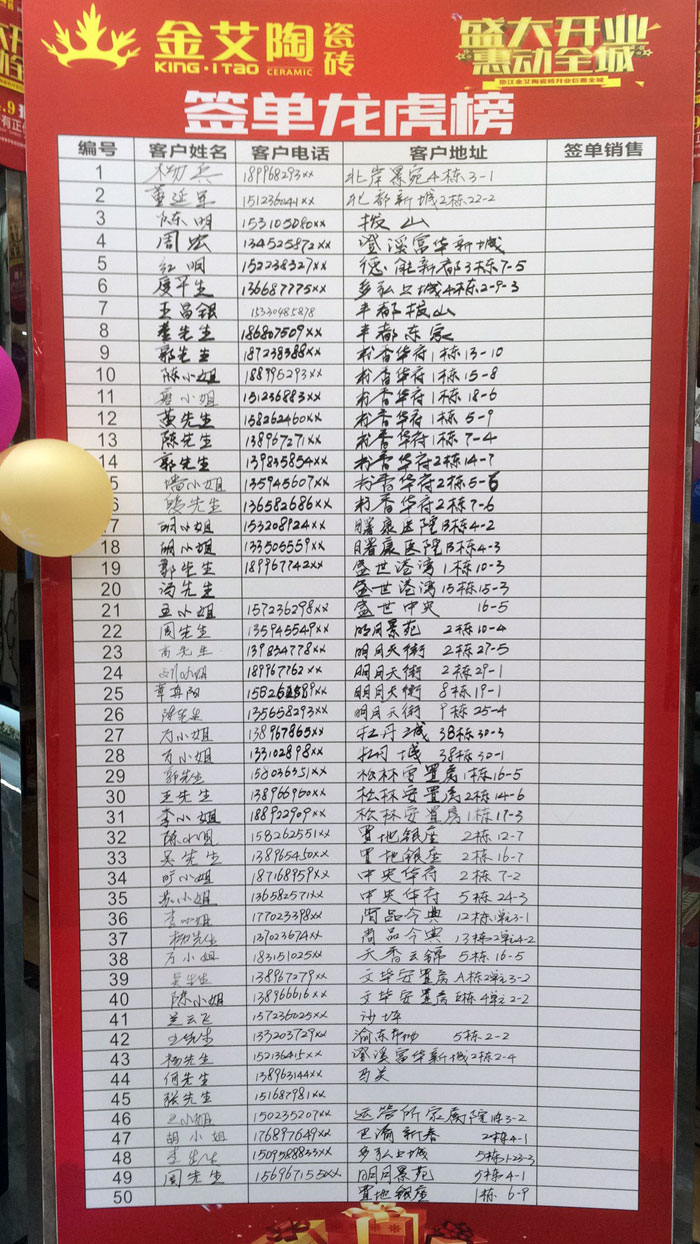 金艾陶 瓷砖
KING·ITAO CERAMIC
盛大开业
惠动全城
签单龙虎榜
编号 客户姓名 客户电话 客户地址 签单销售
1 杨兵 189968293xx 北岸景苑4栋3-1
2 董延军 151236041xx 北部新城2栋22-2
3 陈明 153105080xx 按山
4 周宏 134525872xx 澄溪富华新城
5 红明 152238327xx 德能新都3栋7-5
6 庹先生 136687775xx 多弘上城4栋2-9-3
7 王昌银 15330485878 丰都按山
8 李先生 186807509xx 丰都东家
9 郭先生 187238388xx 粉香华府1栋13-10
10 陈小姐 188996293xx 粉香华府1栋15-8
11 小姐 151236883xx 粉香华府1栋18-6
12 黄先生 158262460xx 粉香华府1栋5-9
13 陈先生 138967271xx 粉香华府1栋7-4
14 郭先生 139835854xx 粉香华府2栋14-7
5 小姐 135945607xx 粉香华府2栋5-6
6 先生 136582686xx 粉香华府2栋7-6
7 胡小姐 153208924xx 曙康医院B栋4-2
18 胡小姐 133505559xx 曙康医院B栋4-3
19 郭先生 189967742xx 盛世港湾1栋10-3
20 冯先生 盛世港湾15栋15-3
21 王小姐 157236298xx 盛世中央 16-5
22 周先生 135945549xx 明月景苑 2栋10-4
23 高先生 139834778xx 明月天街 2栋27-5
24 刘小姐 189967762xx 明月天街 2栋29-1
25 章再阳 明月天街 8栋19-1
26 先生 135658293xx 明月天街 9栋25-4
27 方小姐 138967865xx 牡丹城 38栋30-3
28 方小姐 133102898xx 牡丹城 38栋30-1
29 郭先生 松林安置房1栋16-5
30 王先生 138966960xx 松林安置房2栋14-6
31 李小姐 188922909xx 松林安置房1栋17-3
32 陈小姐 158262551xx 置地银座 2栋12-7
33 吴先生 138965450xx 置地银座 2栋16-7
34 旷小姐 187168959xx 中央华府 2栋7-2
35 苏小姐 136582571xx 中央华府 5栋24-3
36 李小姐 177023398xx 尚品今典 12栋1单元3-1
37 杨先生 137023674xx 尚品今典 13栋2单元4-2
38 方小姐 183151025xx 天香云锦 5栋16-5
39 吴先生 138967279xx 文华安置房A栋2单元3-2
40 陈小姐 138966616xx 文华安置房B栋4单元2-2
41 兰云飞 157236025xx 沙坪
42 133203729xx 渝东 5栋2-2
43 杨先生 152136415xx 澄溪富华新城2栋2-4
44 何先生 138963144xx
45 张先生 151687981xx
46 王小姐 150235207xx 运管所家属院1栋3-2
47 胡小姐 176897649xx 巴渝新春 2栋4-1
48 李先生 1509588833xx 多弘上城 5栋1-23-3
49 周先生 156967155xx 明月景苑 5栋4-1
50 置地银座 1栋 6-9